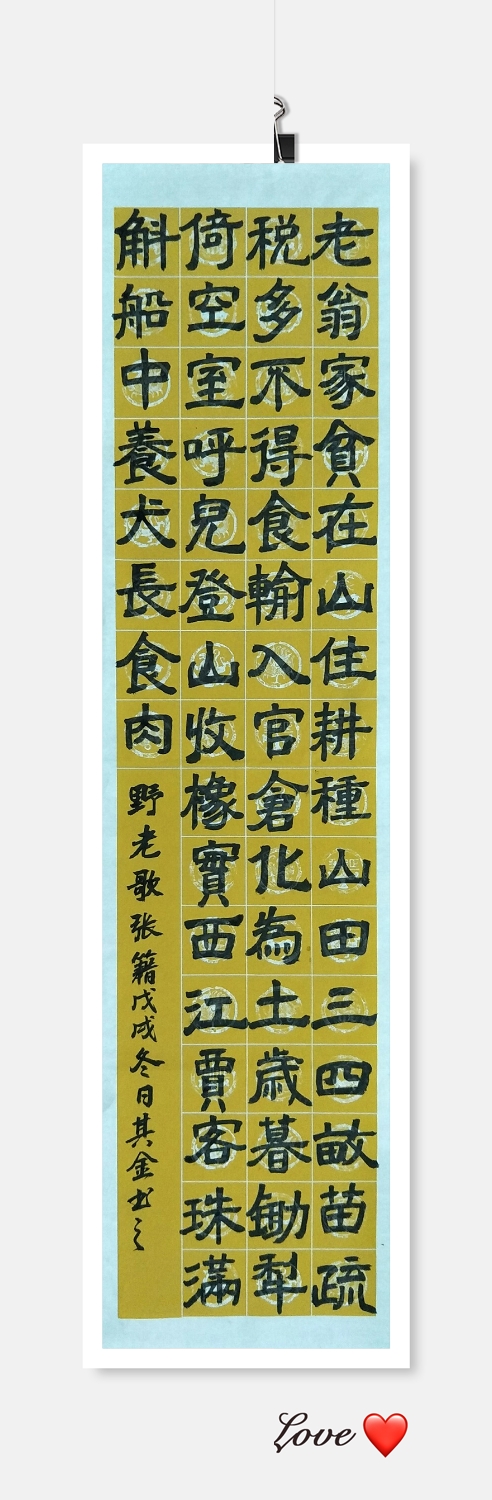 老翁家貧在山住耕種山田三四畝苗疏
税多不得食輸入官倉化為土歳暮鋤犁
倚空室呼兒登山收橡實西江賈客珠滿
斛船中養犬長食肉
野老歌张籍戊戌冬日其金书之
Love ❤️